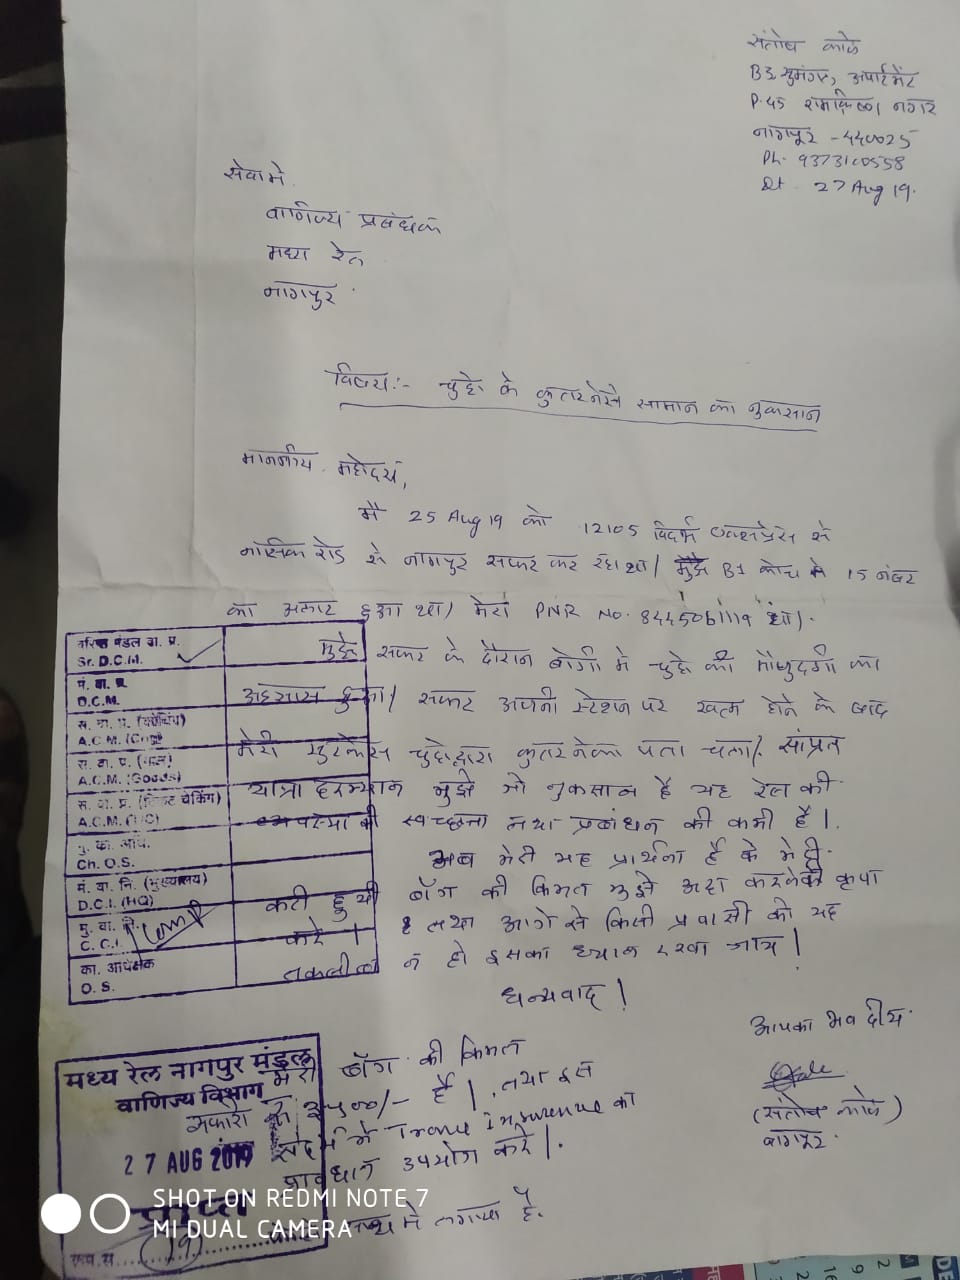 संतोष काळे
B3 सुमंगल, अपार्टमेंट
P.45 रामकृष्ण नगर
नागपूर -440025
Ph. 9373100558
Dt 27 Aug 19.
सेवामे.
वाणिज्य प्रबंधक
मध्य रेल
नागपुर
विषय:- चुहे के कुतरनेसे सामान का नुकसान
माननीय महोदय,
मै 25 Aug 19 को 12105 विदर्भ एक्सप्रेस से
नासिक रोड से नागपुर सफर कर रहा था। मुझे B1 कोच मे 15 नंबर
का अलाट हुआ था। मेरा PNR No. 8445061119 था।
मुझे सफर के दौरान बोगी मे चुहे की मौजुदगी का
अहसास हुआ। सफर अपनी स्टेशन पर खत्म होने के बाद
मेरी सुटकेस चुहेद्वारा कुतरनेका पता चला। सांप्रत
यात्रा दरम्यान मुझे जो नुकसान है यह रेल की
व्यवस्था की स्वच्छता तथा प्रबंधन की कमी है।
अब मेरी यह प्रार्थना है के मेरी
कटी हुयी बॅग की किमत मुझे अदा करनेकी कृपा
करे। तथा आगे से किसी प्रवासी को यह
तकलीफ न हो इसका ध्यान रखा जाए।
धन्यवाद!
आपका भवदीय
(संतोष काळे)
नागपुर
मेरी बॅग की किमत
रु 3500/- है। तथा इस
संदर्भ मे Travel Insurance का
प्रावधान उपयोग करे।
मे लगाया है.
वरिष्ठ मंडल वा. प्र.
Sr. D.C.M.
मं. वा. प्र.
D.C.M.
स. वा. प्र. (कोचिंग)
A.C.M. (Cog)
स. वा. प्र. (माल)
A.C.M. (Goods)
स. वा. प्र. (टिकट चेकिंग)
A.C.M. (TC)
मु. का. अधि.
Ch. O.S.
मं. वा. नि. (मुख्यालय)
D.C.I. (HQ)
मु. वा. नि.
C.C.I.
का. अधीक्षक
O. S.
मध्य रेल नागपुर मंडल
वाणिज्य विभाग
27 AUG 2019
प्राप्त
SHOT ON REDMI NOTE 7
MI DUAL CAMERA